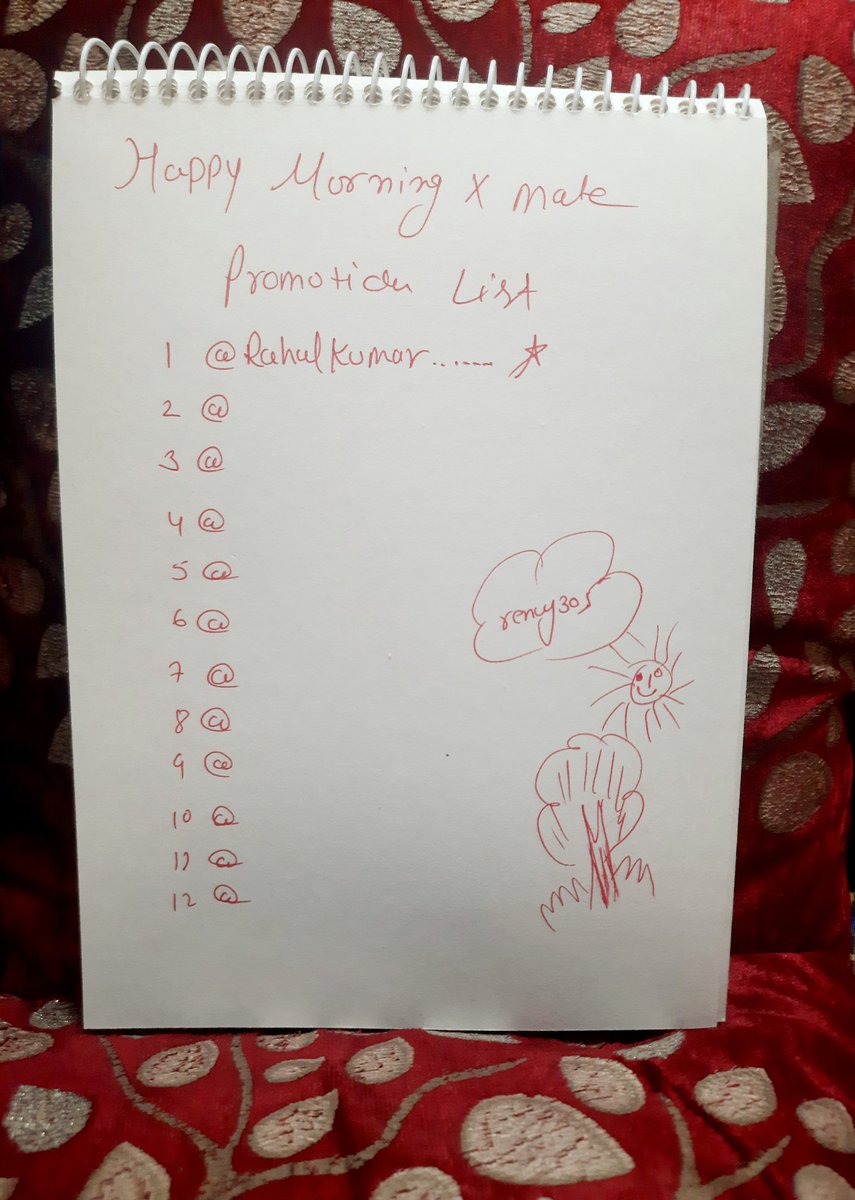 Happy Morning X mate
Promotion List
1 @RahulKumar....... ☆
2 @
3 @
4 @
5 @
6 @
7 @
8 @
9 @
10 @
11 @
12 @
rency305